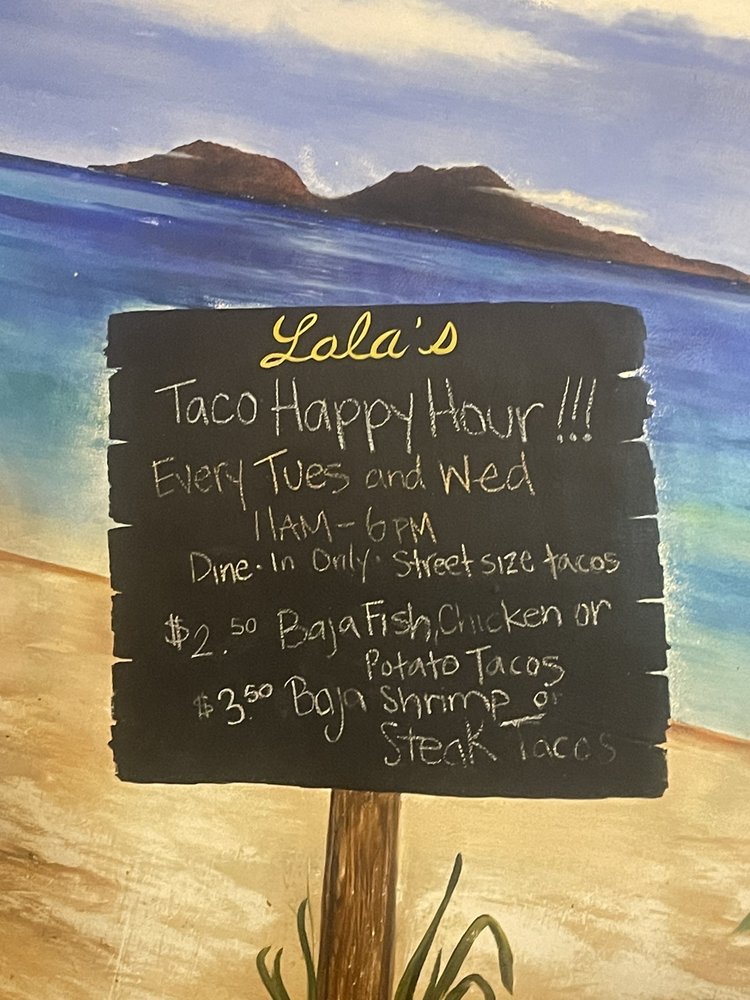 Lola's
Taco Happy Hour!!!
Every Tues and Wed
11AM-6PM
Dine-In Only. Street size tacos
$2.50 Baja Fish, Chicken or
Potato Tacos
$3.50 Baja Shrimp or
Steak Tacos